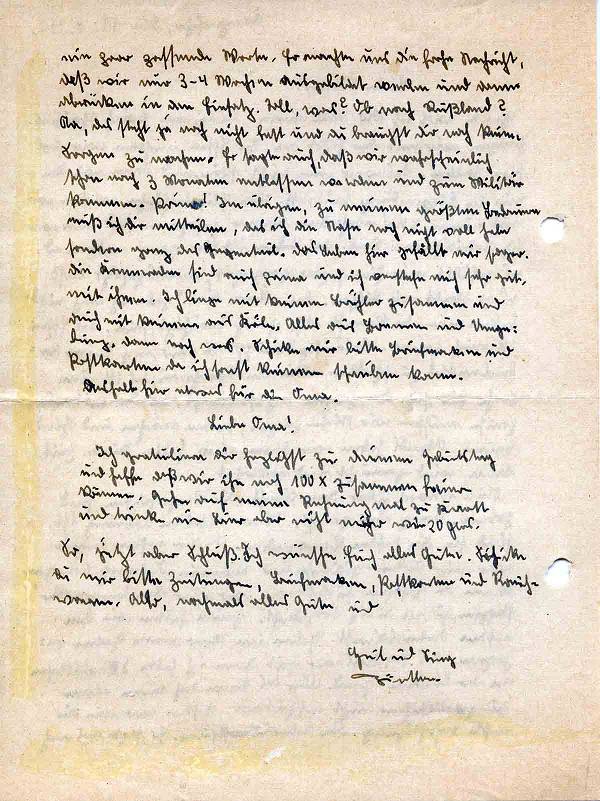 ein paar passende Worte. Er machte uns die frohe Nachricht,
daß wir nur 3-4 Wochen ausgebildet werden und dann
abrücken in den Einsatz. Toll, was? Ob nach Rußland?
Na, das steht ja noch nicht fest und du brauchst dir noch keine
Sorgen zu machen. Er sagte auch, daß wir wahrscheinlich
schon nach 3 Monaten entlassen werden und zum Militär
kommen. Prima! Im übrigen, zu meinem größten Bedauern
muß ich dir mitteilen, das ich die Nase noch nicht voll habe
sondern ganz das Gegenteil. Das Leben hier gefällt mir sogar.
Die Kameraden sind auch prima und ich verstehe mich sehr gut
mit ihnen. Ich liege mit keinem zusammen und
auch mit keinem aus Köln. Alles aus Bremen und Umge-
bung. Dann noch was. Schicke mir bitte Briefmarken und
Postkarten da ich sonst keinem schreiben kann.
Deshalb hier etwas für die Oma.
Liebe Oma!
Ich gratuliere dir herzlichst zu deinem Geburtstag
und hoffe daß wir ihn noch 100 x zusammen feiern
können. Gehe auf meine Rechnung mal zu
und trinke ein Bier aber nicht mehr wie 20 Glas.
So, jetzt aber Schluß. Ich wünsche Euch alles Gute. Schicke
du mir bitte Zeitungen, Briefmarken, Postkarten und Rauch-
waren. Also, nochmals alles Gute und
Gruß und